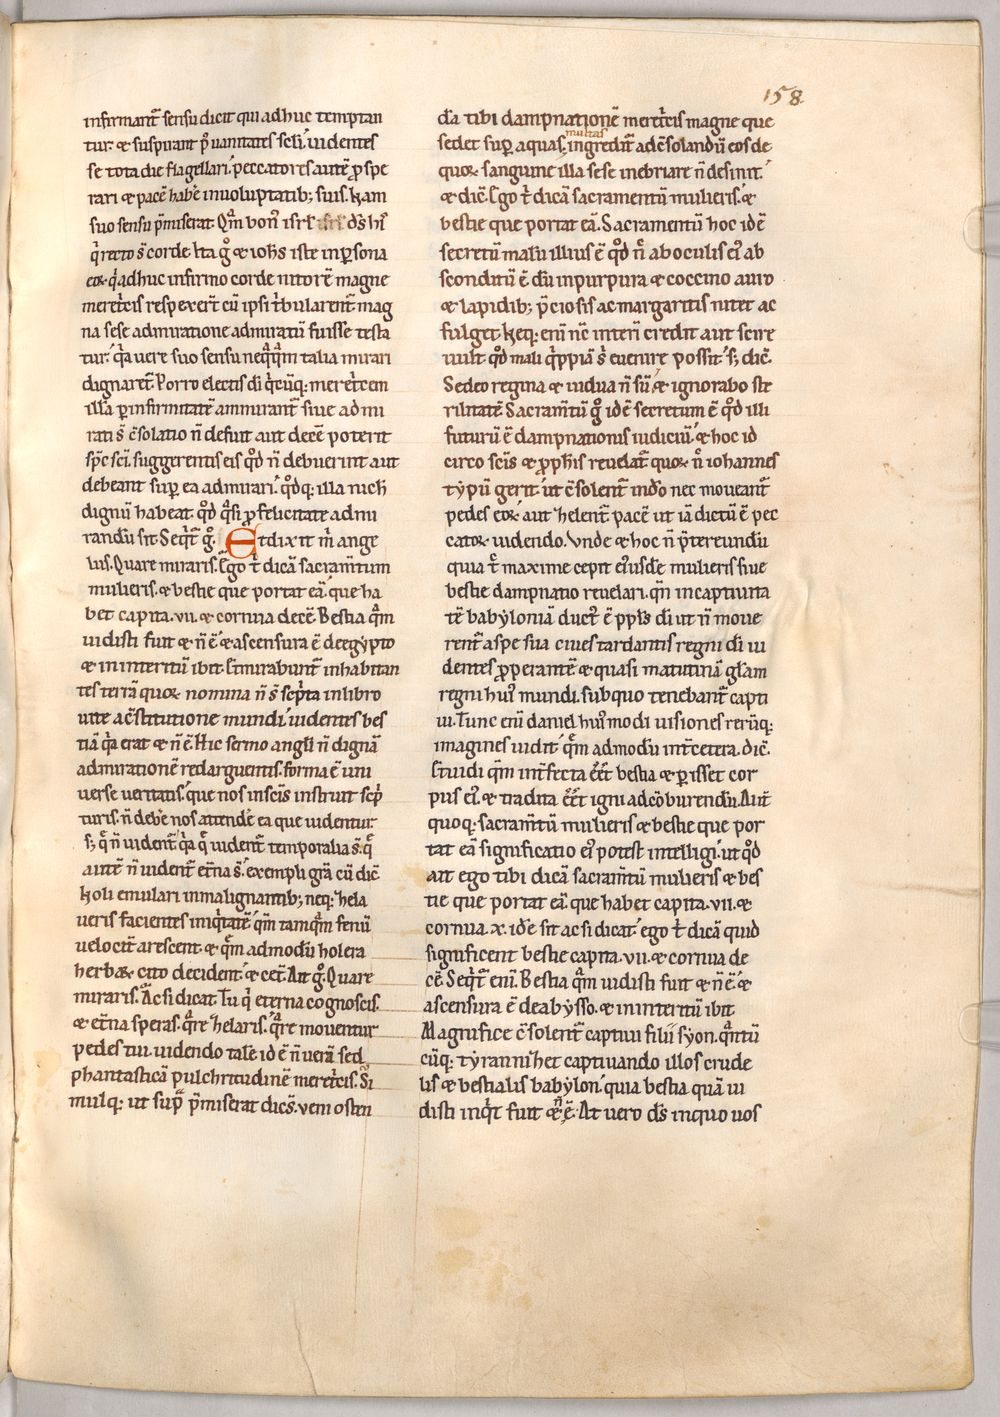 158
infirmant̄ sensu dicit qui adhuc temptan
tur. & suspirant p̄ uanitates sc̄li. uidentes
se tota die flagellari. peccatores autē ꝓspe
rari & pacē habe inuoluptatib; suis. Nam
suo sensu p̄miserat. Qm̄ bon' isrł d's his
q̇ recto s̄ corde. Ita g̊ & iohs iste inpersona
eoꝝ q̇ adhuc infirmo corde nitorē magne
meret̄cis respexer̄t cū ipsi t̄bularent̄ mag
na sese admiratione admiratū fuisse testa
tur. q̄a uere suo sensu neq̄q̄m talia mirari
dignaret̄. Porro electis di q̄cūq; meret̄cem
illā p̲ infirmitatē ammirant̄ siue admi
rati s̄ c̄solatio n̄ defuit aut deēē poterit
sp̄c sc̄i. suggerentis eis q̊d n̄ debuerint aut
debeant sup̲ ea admirari. q̊dq; illa nich
dignū habeat q̊d q̄si ꝓ felicitate admi
randū sit. Seq̄t̄ g̊. Et dixit m̄ ange
lus. Quare miraris. Ego t̄ dicā sacram̄tum
mulieris. & bestie que portat eā. que ha
bet capita .vii. & cornua decē. Bestia q̄m
uidisti fuit & n̄ ē & ascensura ē deegypto
& ininteritū ibit. Et mirabunt̄ inhabitan
tes terrā quoꝝ nomina n̄ s̄ sc̄pta inlibro
uite ac̄stitutione mundi. uidentes bes
tiā q̄a erat & n̄ ē. Hic sermo angli n̄ dignā
admirationē redarguentis. forma ē uni
uerse ueritatis. que nos insciīs instruit sc̄p
turis. n̄ debe nos attendē ea que uidentur
s; q̄ n̄ uident̄. q̄a q̄ uident̄ temporalia s̄. q̄
autē n̄ uident̄ et̄na s̄. exempli grā cū dic̄
Noli emulari inmalignantib; neq; hela
ueris facientes iniq̄tatē. q̄m tamq̄m fenū
uelocit̄ arescent. & q̄m admodū holera
herbaꝝ cito decident. & cet̄. Ait g̊. Quare
miraris. Ac si dicat. Tu q̇ eterna cognoscis.
& et̄na speras. q̄re helaris. q̄re mouentur
pedes tui. uidendo talē id ē n̄ uerā sed
phantasticā pulchritudinē meret̄cis. Si
mulq; ut sup̄ p̄miserat dicēs. ueni osten
dā tibi dampnationē meret̄cis magne que
sedet sup̲ aquas multas. ingredit̄ adc̄solandū eos de
quoꝝ sanguine illa sese inebriare n̄ desinit.
& dic̄. Ego t̄ dicā sacramentū mulieris. &
bestie que portat eā. Sacramentū hoc id ē
secretū malū illius ē q̊d n̄ aboculis ei' ab
sconditū ē. dū inpurpura & coccino auro
& lapidib; p̄ciosis ac margaritis nitet ac
fulget. Neq; eni nē inteī credit aut scire
uult q̊d mali q̄ppiā s̄ euenire possit. s; dic̄.
Sedeo regina & uidua n̄ sū. & ignorabo ste
rilitatē. Sacram̄tū g̊ id ē secretum ē q̊d illi
futurū ē dampnationis iudiciū. & hoc id
circo scīs & ꝓphīs reuelat̄ quoꝝ n̄ iohannes
typū gerit. ut c̄solent̄ indn̄o nec moueant̄
pedes eoꝝ aut helent̄ pacē ut iā dictū ē pec
catoꝝ uidendo. Vnde & hoc n̄ p̄tereundū
quia t̄ maxime cepit ei'usdē mulieris siue
bestie dampnatio reuelari. qn̄ incaptiuita
tē babyloniā duct' ē ppl's di ut n̄ moue
rent̄ aspe sua ciues tardantis regni di ui
dentes ꝓperantē & quasi matutinā gl̄am
regni hui' mundi. subquo tenebant̄ capti
ui. Tunc eni daniel hui'modi uisiones rerūq;
imagines uidit. q̄m admodū int̄cetera. dic̄.
Et uidi q̄m int̄fecta ēēt bestia & p̲isset cor
pus ei'. & tradita ēēt igni adcōburendū. Aut̄
quoq; sacram̄tū mulieris & bestie que por
tat eā significatio ei' potest intelligi. ut q̊d
ait ego tibi dicā sacram̄tū mulieris & bes
tie que portat eā. que habet capita .vii. &
cornua .x. id ē sit ac si dicat. ego t̄ dicā quid
significent bestie capita .vii. & cornua de
cē. Seq̄t̄ eni. Bestia q̄m uidisti fuit & n̄ ē. &
ascensura ē deabysso. & ininteritū ibit.
Magnifice c̄solent̄ captiui filii syon. q̄ntū
cūq; tyranni hec captiuando illos crude
lis & bestialis babylon. quia bestia quā ui
disti inq̄t fuit & n̄ ē. At uero d's inquo uos